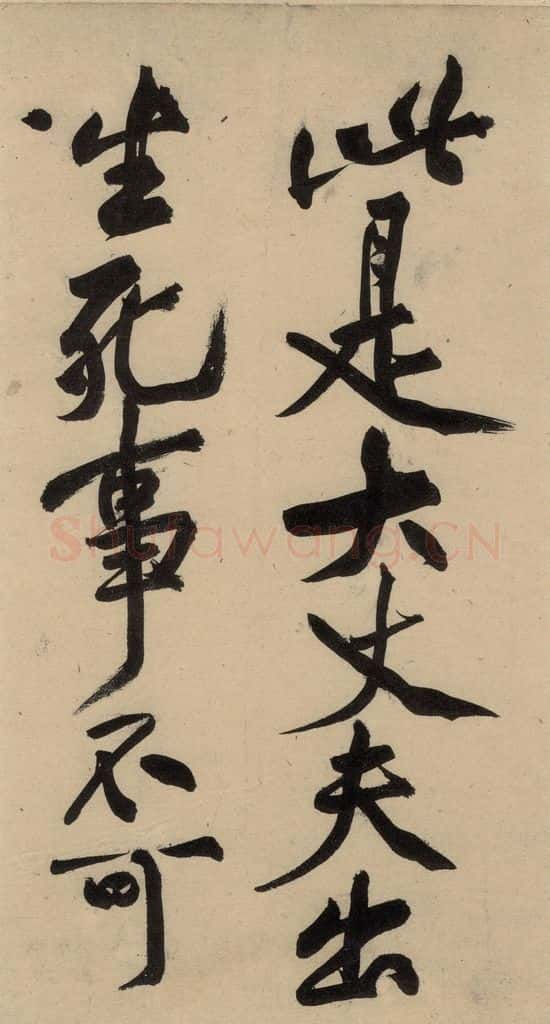 此是大丈夫出
生死事不可
Shufawang.CN